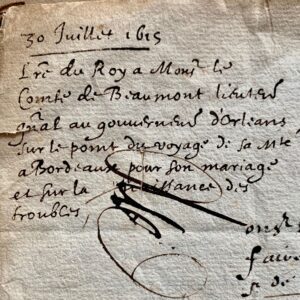 30 Juillet 1615
Lre du Roy a Monsr le
Comte de Beaumont lieuten
gnal au gouvernem d'Orleans
sur le point du voyage de sa Mte
a Bordeaux pour son mariage
et sur la naissance des
troubles,